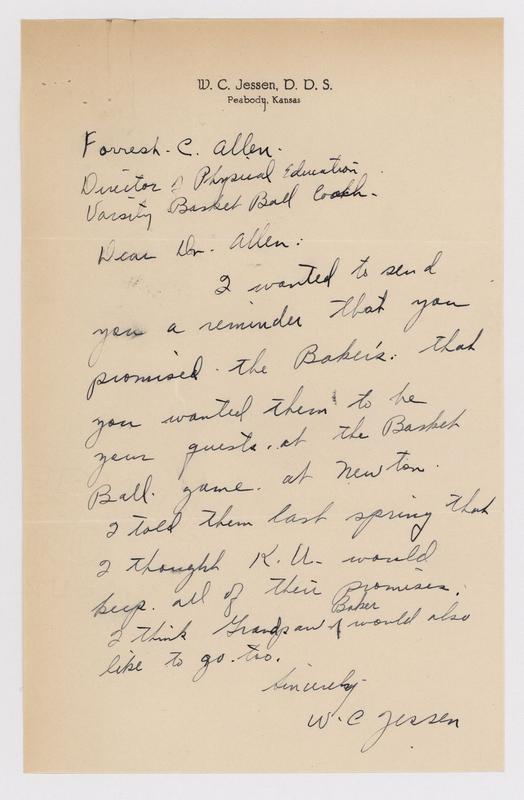 W. C. Jessen, D. D. S.
Peabody, Kansas
Forresh. C. Allen.
Director of Physical Education
Varsity Basket Ball Coach.
Dear Dr. Allen:
I wanted to send
you a reminder that you
promised the Baker's. that
you wanted them to be
your guests. at the Basket
Ball. game. at Newton.
I told them last spring that
I thought K. U. would
keep. all of their promises.
I think Grandpaw Baker would also
like to go. too.
Sincerely
W. C Jessen